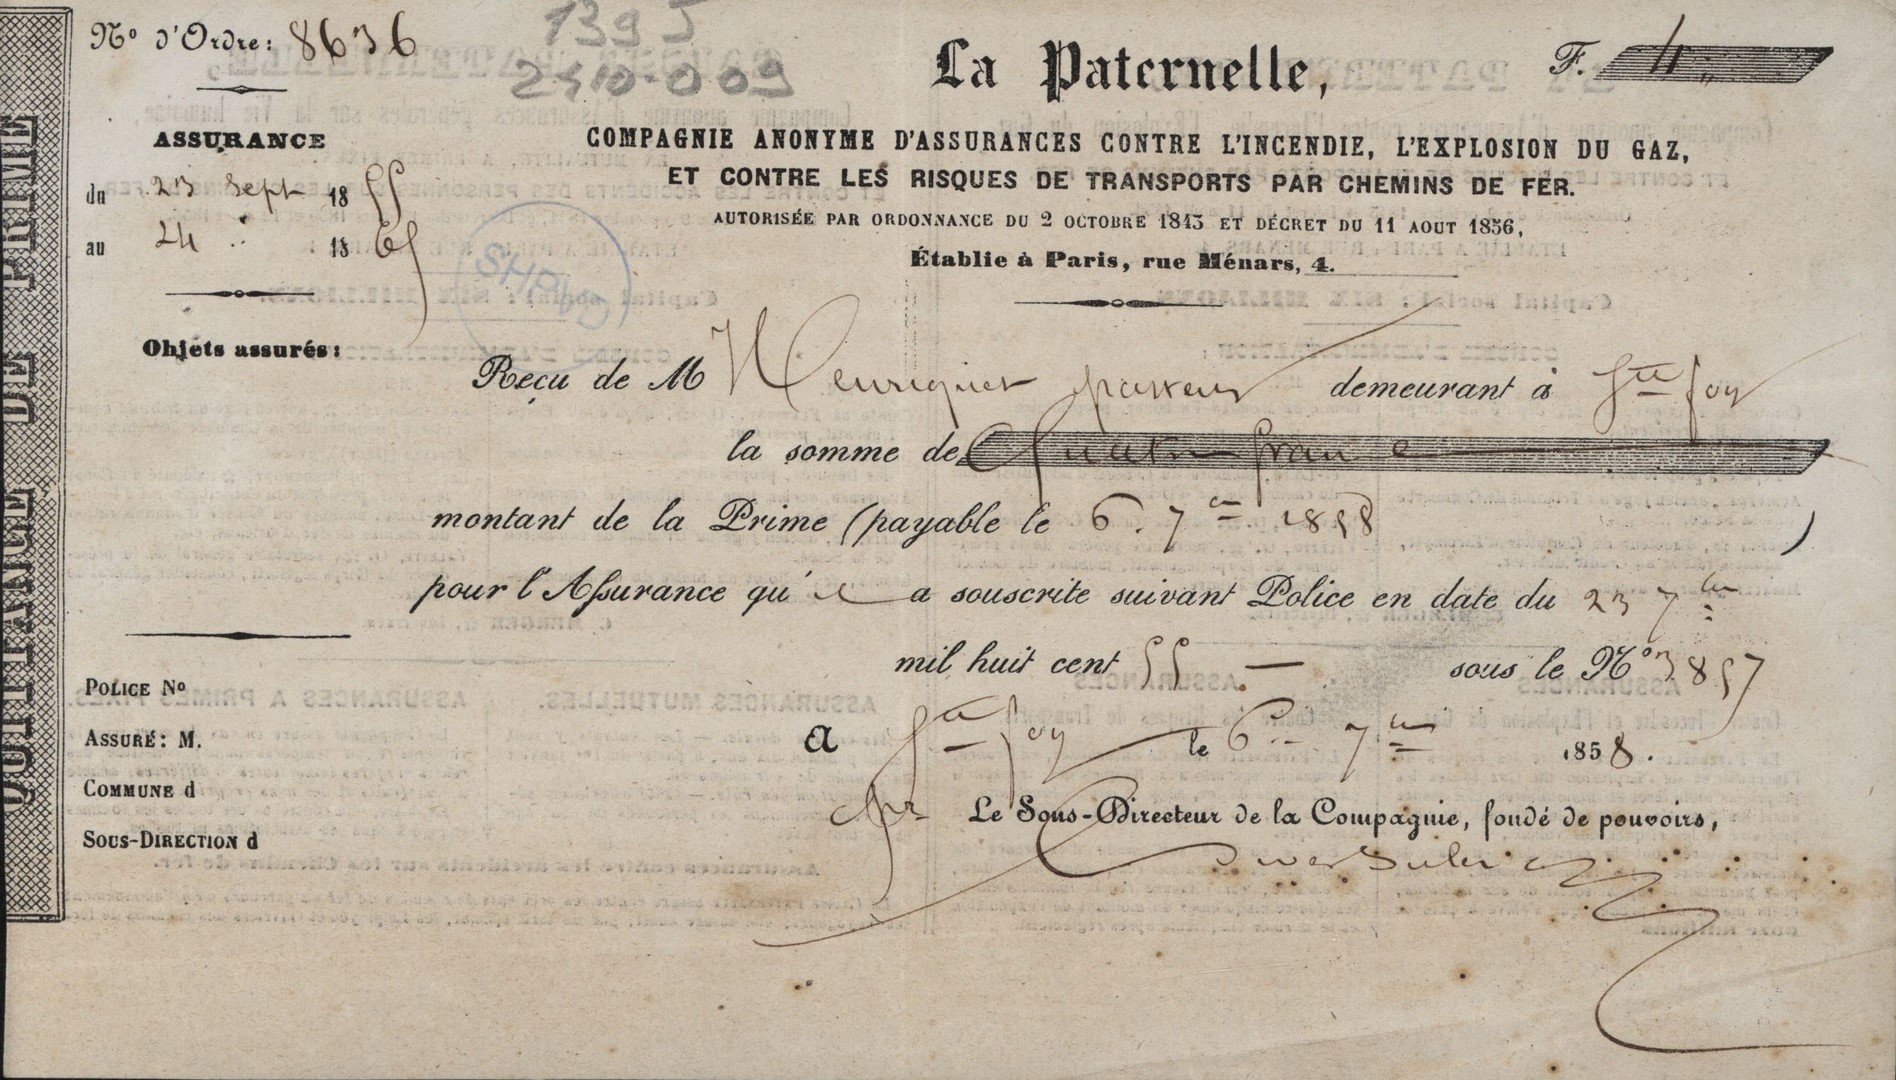 QUITTANCE DE PRIME
N° d'Ordre: 8636
1395
2410-009
La Paternelle,
F. 4 "
COMPAGNIE ANONYME D'ASSURANCES CONTRE L'INCENDIE, L'EXPLOSION DU GAZ,
ET CONTRE LES RISQUES DE TRANSPORTS PAR CHEMINS DE FER.
AUTORISÉE PAR ORDONNANCE DU 2 OCTOBRE 1843 ET DÉCRET DU 11 AOUT 1856,
Établie à Paris, rue Ménars, 4.
ASSURANCE
du 23 Sept 1855
au 24 " 1865
SHPVD
Objets assurés:
Reçu de M Henriquet pasteur demeurant à Ste foy
la somme de Quatre franc
montant de la Prime (payable le 6. 7bre 1858 )
pour l'Assurance qu'il a souscrite suivant Police en date du 23 7bre
mil huit cent 55 — sous le N° 3857
A Ste foy le 6 7bre 1858.
Le Sous-Directeur de la Compagnie, fondé de pouvoirs,
POLICE N°
ASSURÉ: M.
COMMUNE d
SOUS-DIRECTION d